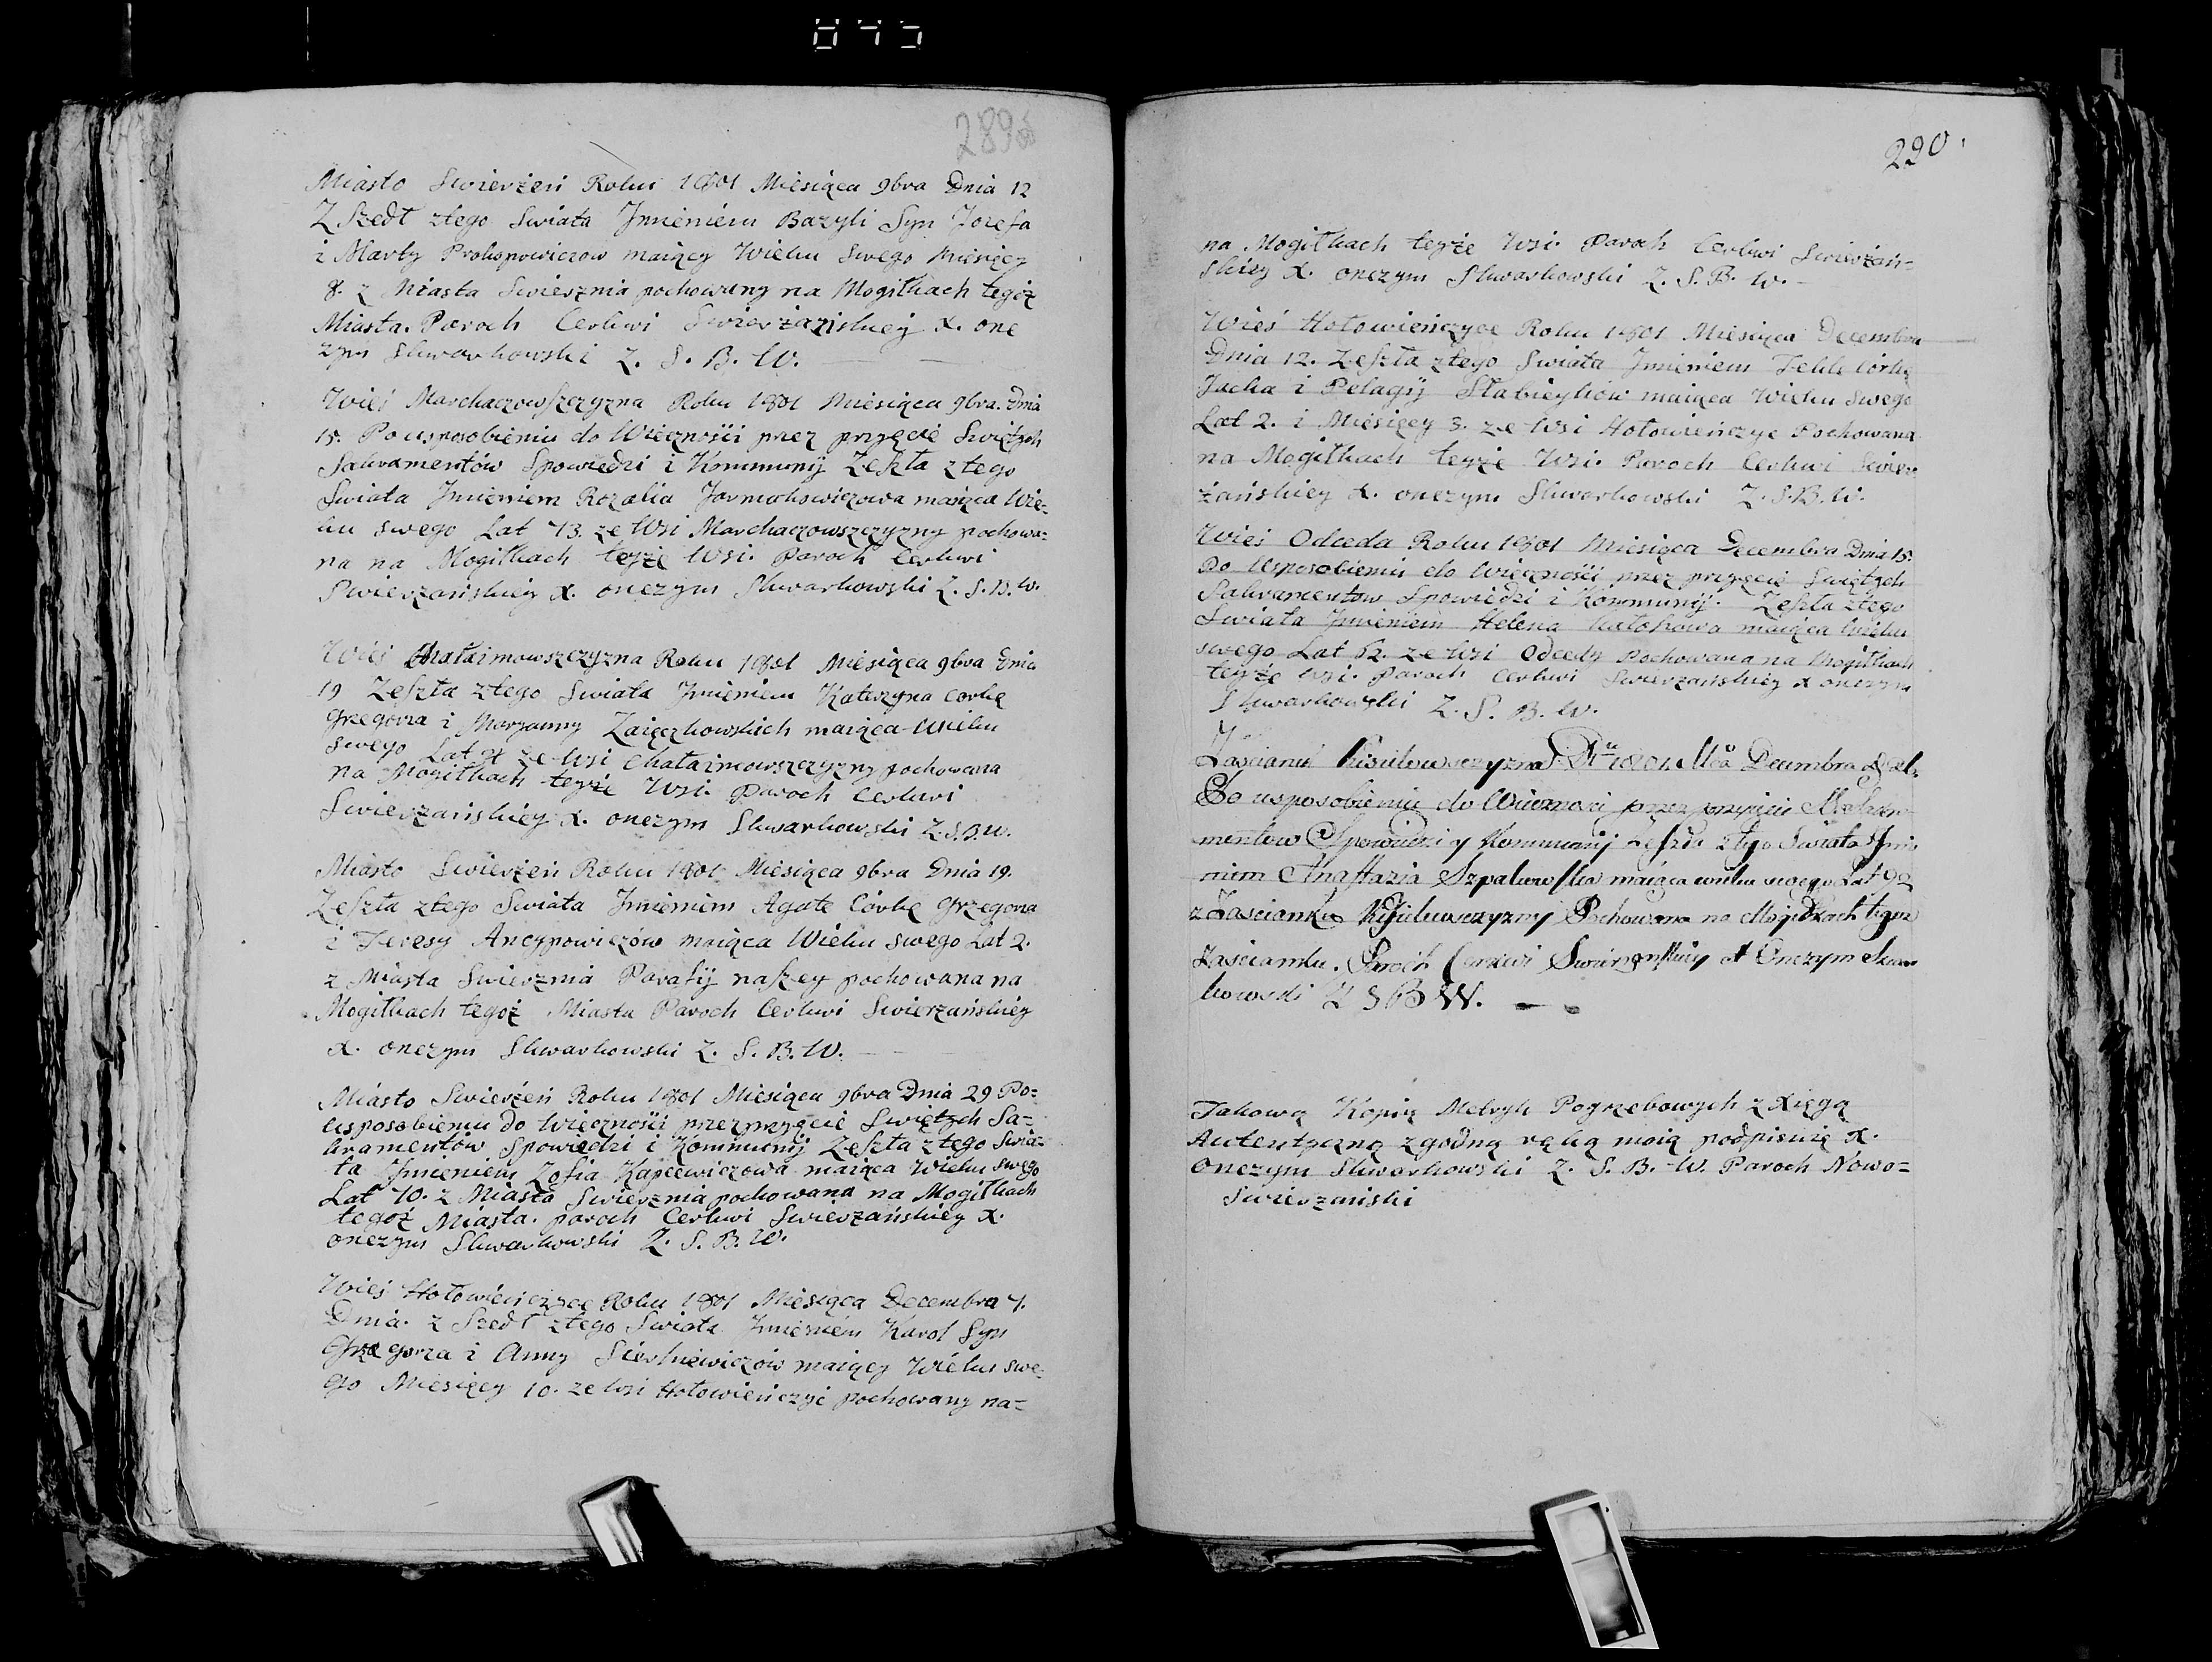 845
289
Miasto Swierżeń Roku 1801 Miesiąca 9bra Dnia 12
Z Szedł ztego Swiata Jmieniem Bazyli Syn Jozefa
i Marty Prokopowiczow maiący Wieku Swego Miesięcy
8. z Miasta Swierznia pochowany na Mogiłkach tegoż
Miasta. Paroch Cerkwi Swierżańskiey X. One
zym Skwarkowski Z. S. B. W.
Wieś Marchaczowszczyzna Roku 1801 Miesiąca 9bra. Dnia
15. Po usposobieniu do Wieczności przez przyęcie Swiętych
Sakramentów Spowiedzi i Kommunij Zeszła ztego
Swiata Jmieniem Rozalia Jarmołowiczowa maiąca Wie=
ku swego Lat 73. ze Wsi Marchaczowszczyzny pochowa=
na na Mogiłkach teyże Wsi. Paroch Cerkwi
Swierzańskiey X. onezym Skwarkowski Z. S. B. W.
Wieś Chataimowszczyzna Roku 1801 Miesiąca 9bra Dnia
19 Zeszła ztego Swiata Jmieniem Katerzyna Corkę
Grzegorza i Maryanny Zaięczkowskich maiąca Wieku
swego Lat ze Wsi Chataimowszczyzny pochowana
na Mogiłkach teyże Wsi. Paroch Cerkwi
Swierzańskiey X. onezym Skwarkowski Z. S. B. W.
Miasto Swierżeń Roku 1801 Miesiąca 9bra Dnia 19.
Zeszła ztego Swiata Jmieniem Agate Córkę Grzegorza
i Teresy Ancypowiczów maiąca Wieku swego Lat 2.
z Miasta Swierznia Parafij naszey pochowana na
Mogiłkach tegoż Miasta Paroch Cerkwi Swierzańskiey
X. onezym Skwarkowski Z. S. B. W.
Miasto Swierżeń Roku 1801 Miesiąca 9bra Dnia 29 Po=
usposobieniu do Wieczności przez przyęcie Swiętych Sa=
kramentów Spowiedzi i Kommunij Zeszła ztego Swia=
ta Jmieniem Zofia Kapcewiczowa maiąca Wieku swego
Lat 70. z Miasta Swierznia pochowana na Mogiłkach
tegoż Miasta. paroch Cerkwi Swierzańskiey X.
onezym Skwarkowski Z. S. B. W.
Wieś Hołowieńczyce Roku 1801 Miesiąca Decembra 7.
Dnia. z Szedł ztego Swiata Jmieniem Karol Syn
Grzegorza i Anny Sierkiewiczów maiący Wieku swe=
go Miesięcy 10. ze Wsi Hołowieńczyc pochowany na=
290.
na Mogiłkach teyże Wsi. Paroch Cerkwi Swierżań=
skiey X. onezym Skwarkowski Z. S. B. W.
Wieś Hołowieńczyce Roku 1801 Miesiąca Decembra
Dnia 12. Zeszła ztego Swiata Jmieniem Tekle Córkę
Jacka i Pelagij Słabieyków maiąca Wieku swego
Lat 2. i Miesięcy 3. ze Wsi Hołowieńczyc Pochowana
na Mogiłkach teyże Wsi. Paroch Cerkwi Swier
żańskiey X. onezym Skwarkowski Z. S. B. W.
Wieś Odceda Roku 1801 Miesiąca Decembra Dnia 15.
Po Usposobieniu do Wieczności przez przyęcie Swiętych
Sakramentow Spowiedzi i Kommunij. Zeszła ztego
Swiata Jmieniem Helena maiąca Wieku
swego Lat 62. ze Wsi Odcedy Pochowana na Mogiłkach
teyże Wsi. Paroch Cerkwi Swierzańskiey X onezym
Skwarkowski Z. S. B. W.
Zaścianek Kisielewszczyzna 1801. Decembra
Po usposobieniu do Wieczności przez przyięcie
mentow Spowiedzi y Kommunij Zeszła z tego Swiata Jmie
niem Anastazia Szpakowska maiąca wieku swego Lat 90
z Zascianku Kisielewszczyzny Pochowana na Mogiłkach tegoż
Zascianku. Paroch Cerkwi Swierzanskiey X Onezym Skwar
kowski Z S B W.
Takową Kopią Metryk Pogrzebowych z Xięgą
Autentyczną zgodną ręką moią podpisuię X.
Onezym Skwarkowski Z. S. B. W. Paroch Nowo=
Swierzański